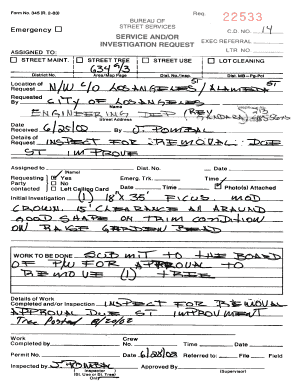 Form No. 345 (R. 2-83)
Req. 22533
BUREAU OF
STREET SERVICES
Emergency
C.D. NO. 14
SERVICE AND/OR
INVESTIGATION REQUEST
EXEC REFERRAL
LTR NO.
ASSIGNED TO:
STREET MAINT. STREET TREE STREET USE LOT CLEANING
634 5/3
District No. Area/Map Page Dist. No./Insp. Dist. MB - Pg-Pcl
Location of
Request N/W C/O LOS ANGELES ST / ALAMEDA ST
Requested
by CITY OF LOS ANGELES
ENGINEERING DEP
Street Address
Date
Received 6/25/02 By J. POMBAL
Details of
Request INSPECT FOR REMOVAL DUE
ST IMPROVE
Assigned to Dist. No. Date
(Name)
Requesting Yes Emerg. Trk. Time
Party No
contacted Left Calling Card Date Time Photo(s) Attached
Initial Investigation (1) 18" X 35' FICUS MOD
CROWN 15' CLEARANCE ALL AROUND
GOOD SHAPE OR TRIM CONDITION
ON RAISE GARDEN BEAD
WORK TO BE DONE SUBMIT TO THE BOARD
OF P/W FOR APPROVAL TO
REMOVE (1) TREE
Details of Work
Completed and/or Inspection INSPECT FOR REMOVAL
APPROVAL DUE ST IMPROVMENT
Tree Posted 8/21/02
Work Crew
Completed by No. Time Date
Permit No. Date Referred to: File Field
Inspected by J. POMBAL Approved by
Inspector (Supervisor)
(St. Use or St. Tree)
Only